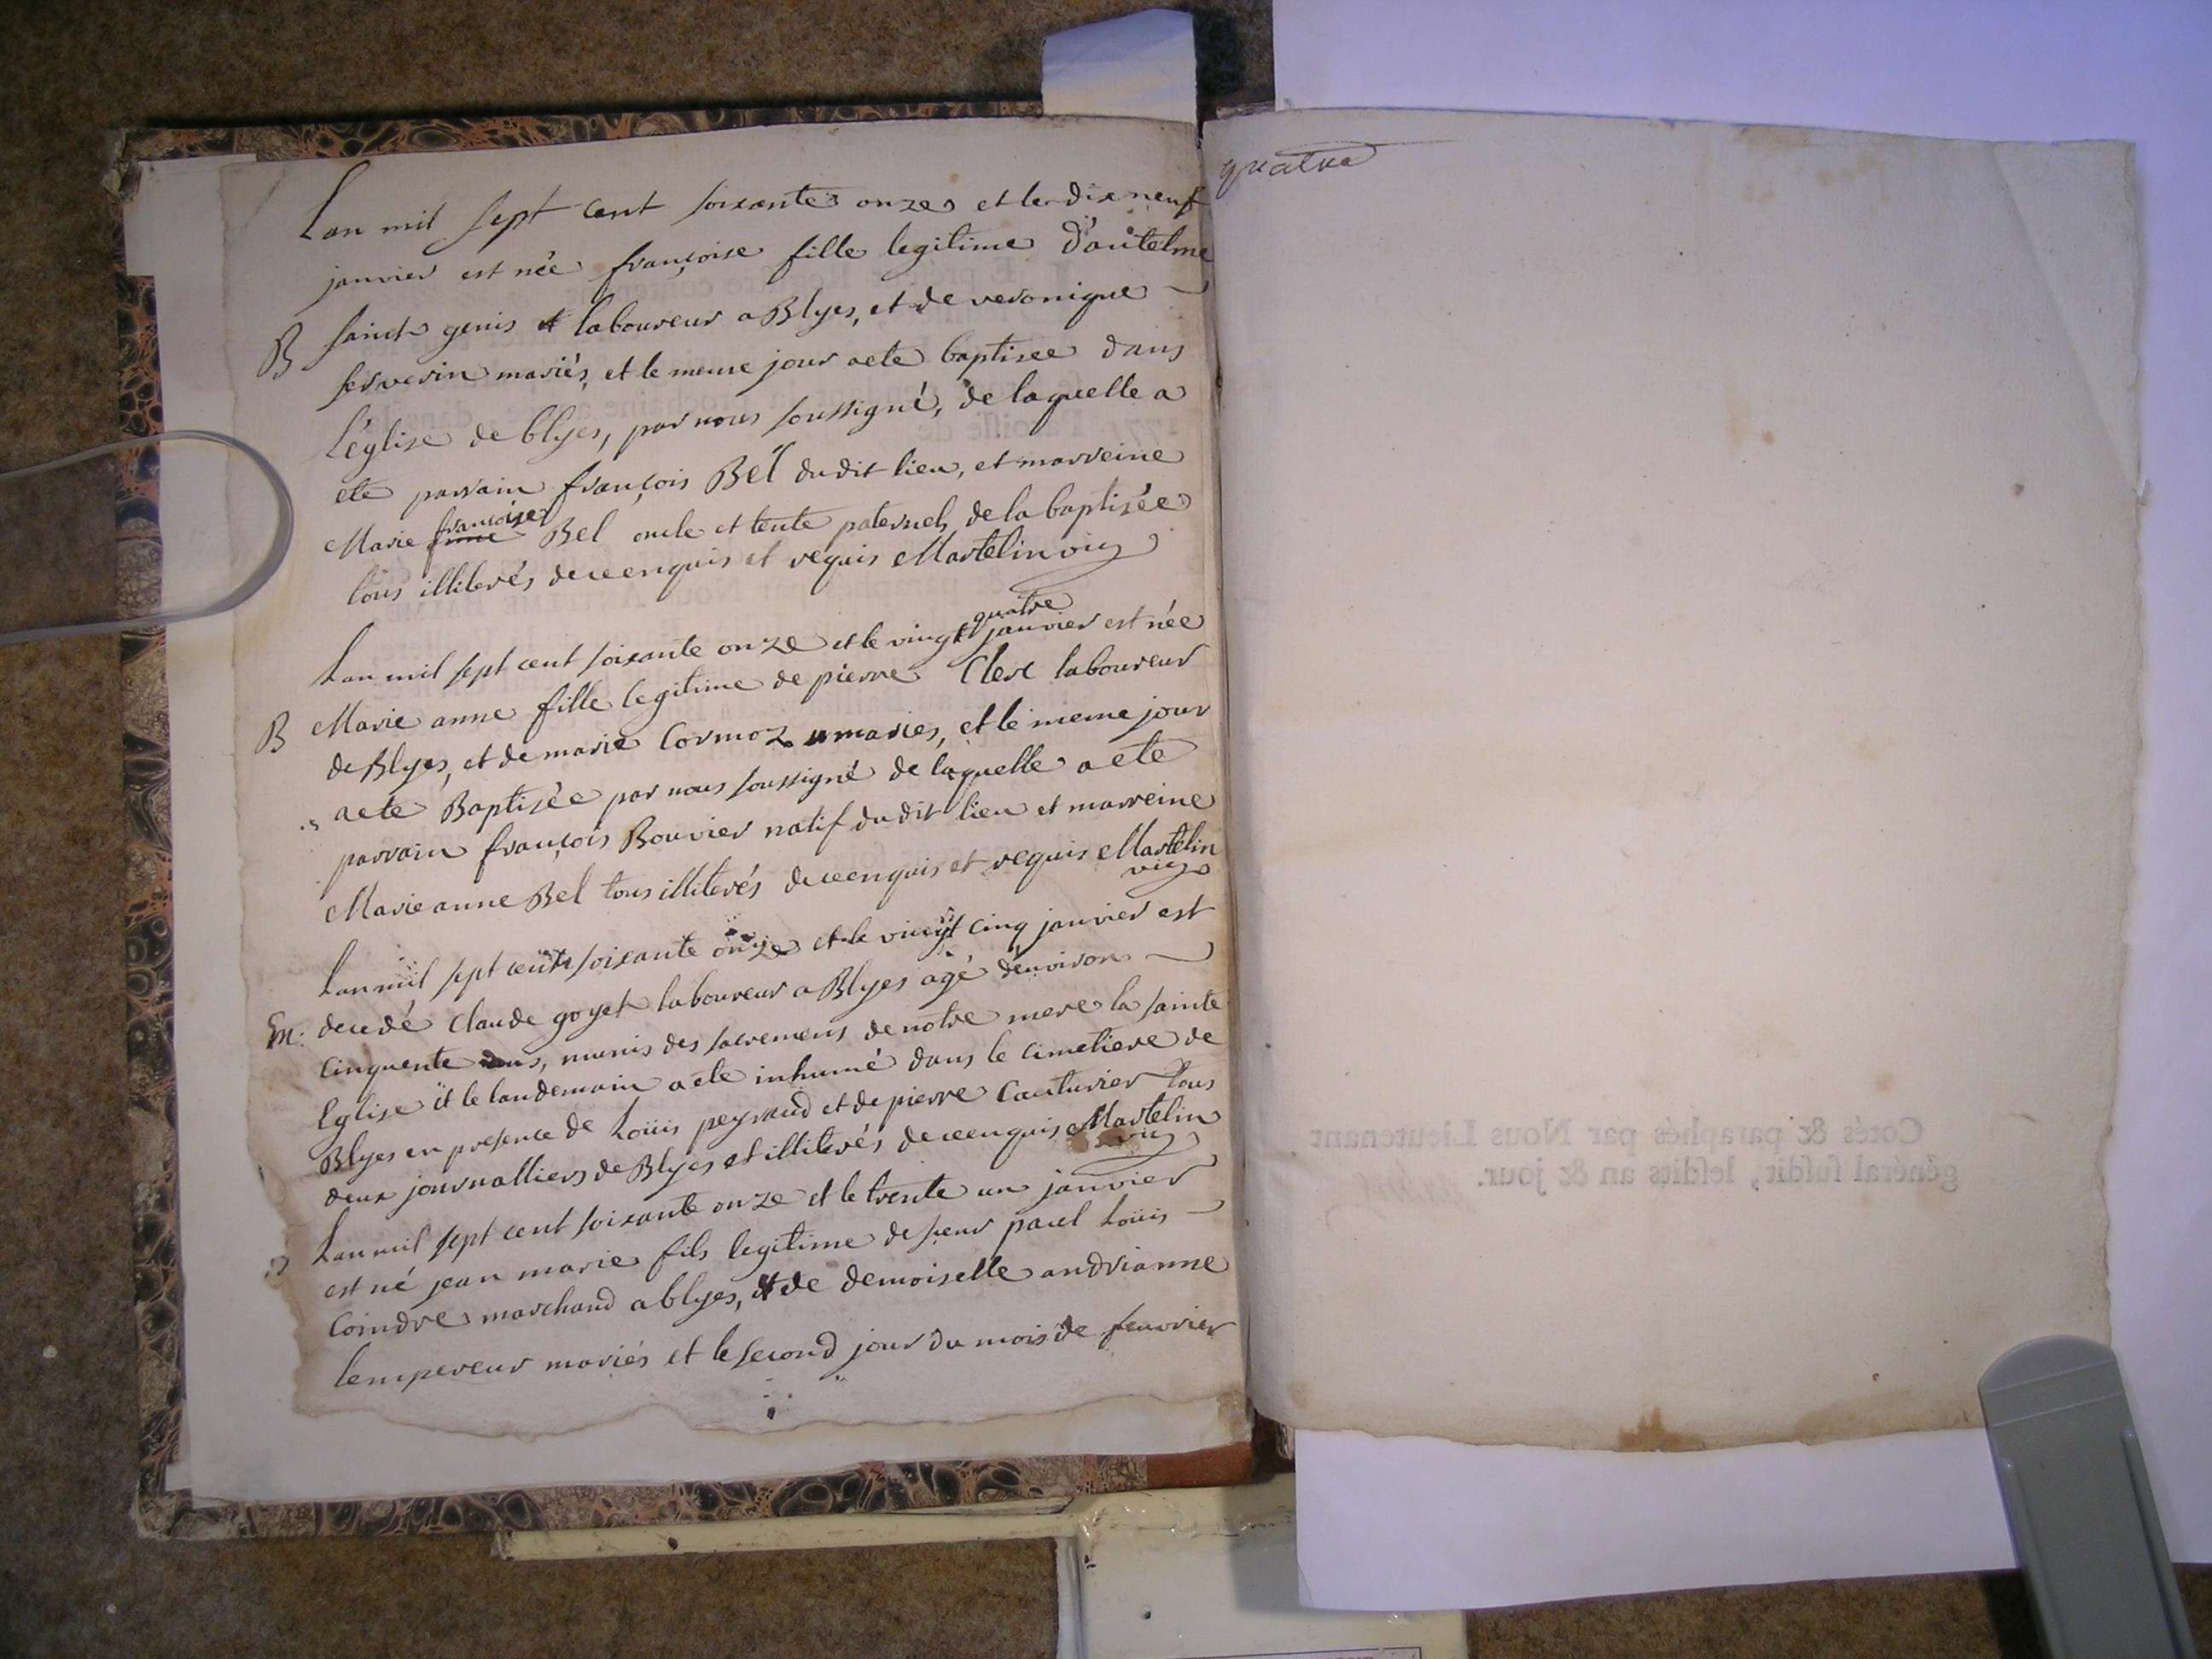 Lan mil sept cent soixante onze et le dix neuf
janvier est née françoise fille legitime d'antelme
B saint genis laboureur a Blyes, et de veronique
serverin mariés, et le meme jour a ete baptisee dans
L'église de blyes, par nous soussigné, de laquelle a
ete parrain françois Bel du dit lieu, et marreine
Marie françoise Bel oncle et tente paternels de la baptisée
tous illiterés de ce enquis et requis Martelin vic
Lan mil sept cent soixante onze et le vingt quatre janvier est née
B Marie anne fille legitime de pierre Clerc laboureur
de Blyes, et de marie Cormoz mariés, et le meme jour
a ete Baptisée par nous soussigné de laquelle a ete
parrain françois Bouvier natif du dit lieu et marreine
Marie anne Bel tous illiterés de ce enquis et requis Martelin
vic
Lan mil sept cent soixante onze et le vingt cinq janvier est
Em: decedé Claude goyet laboureur a Blyes agé d'environ
cinquente ans, munis des sacremens de notre mere la sainte
Eglise et le landemain a ete inhumé dans le cimetiere de
Blyes en presence de Loüis peyraud et de pierre Couturier tous
deux journalliers de Blyes et illiterés de ce enquis Martelin
vic
Lan mil sept cent soixante onze et le trente un janvier
est né jean marie fils legitime de sieur paul Loüis
Coindre marchand a blyes, et de demoiselle andrianne
lempereur mariés et le second jour du mois de feuvrier
quatre
Cotés & paraphés par Nous Lieutenant
général susdit, lesdits an & jour.